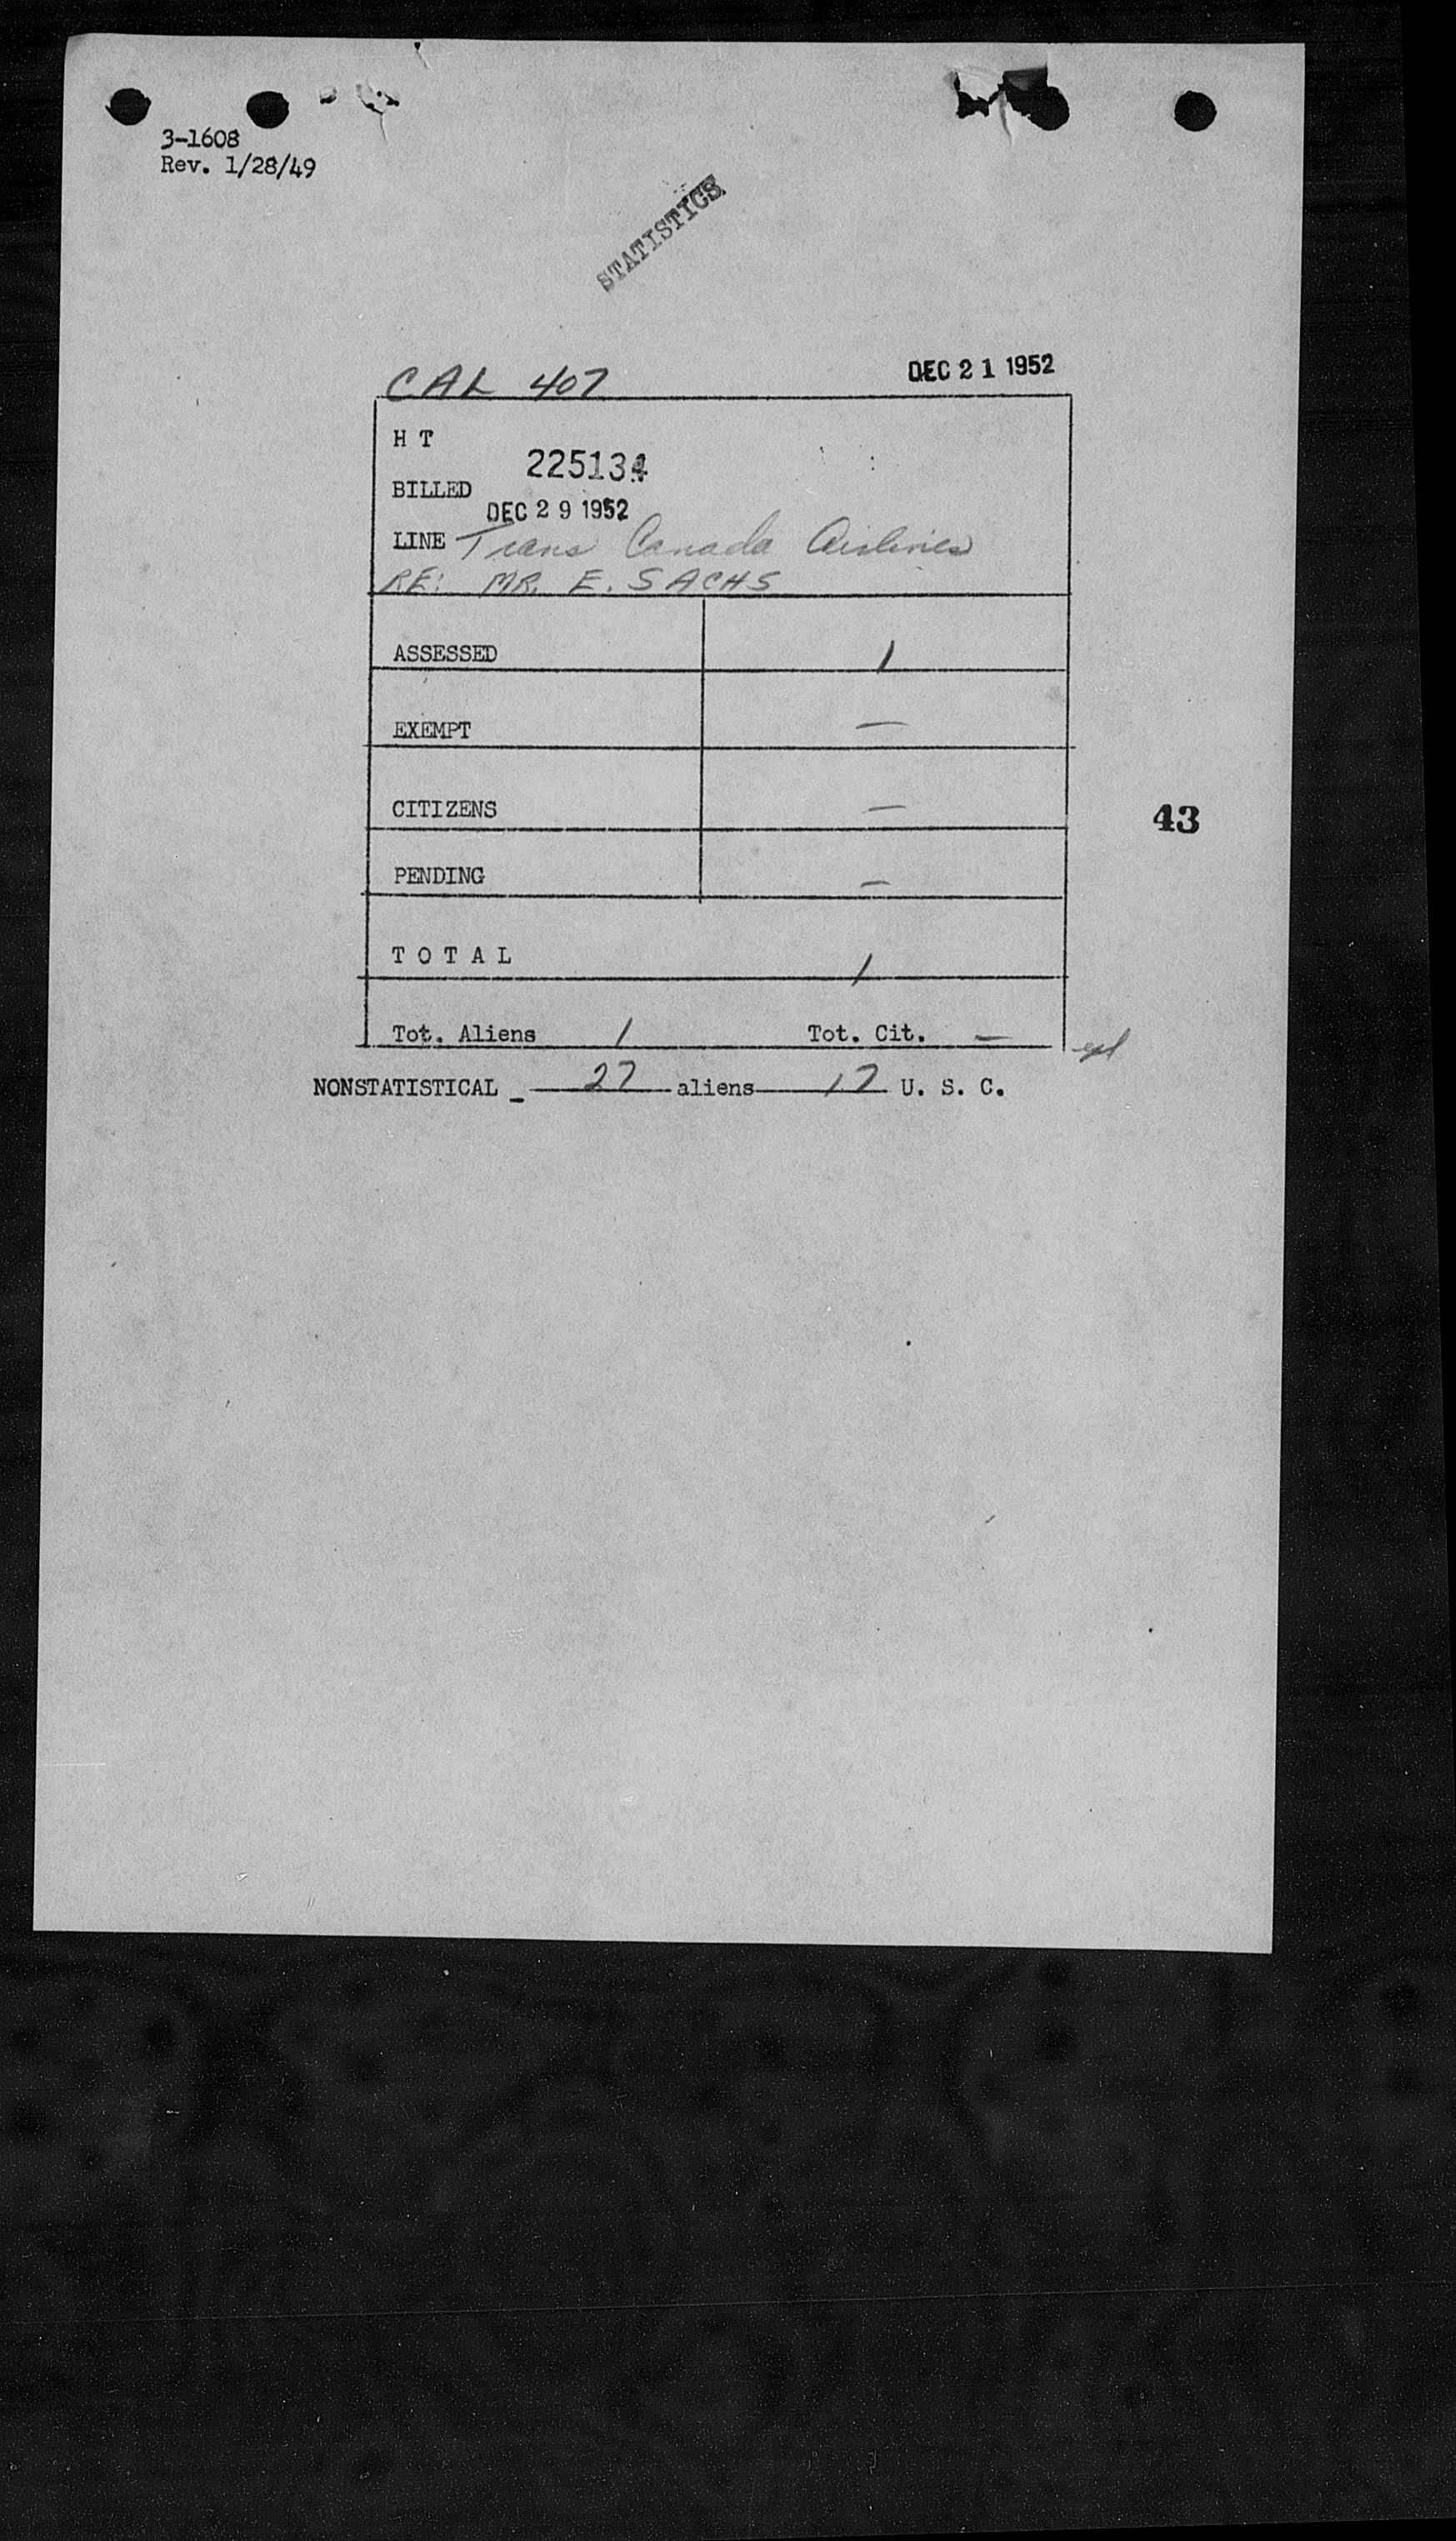 3-1608
Rev. 1/28/49
STATISTICS
CAL 407 DEC 21 1952
H T
225134
BILLED
DEC 29 1952
LINE Trans Canada Airlines
RE: MR. E. SACHS
ASSESSED 1
EXEMPT —
CITIZENS —
43
PENDING —
T O T A L 1
Tot. Aliens 1 Tot. Cit. —
NONSTATISTICAL - 27 aliens 17 U. S. C.